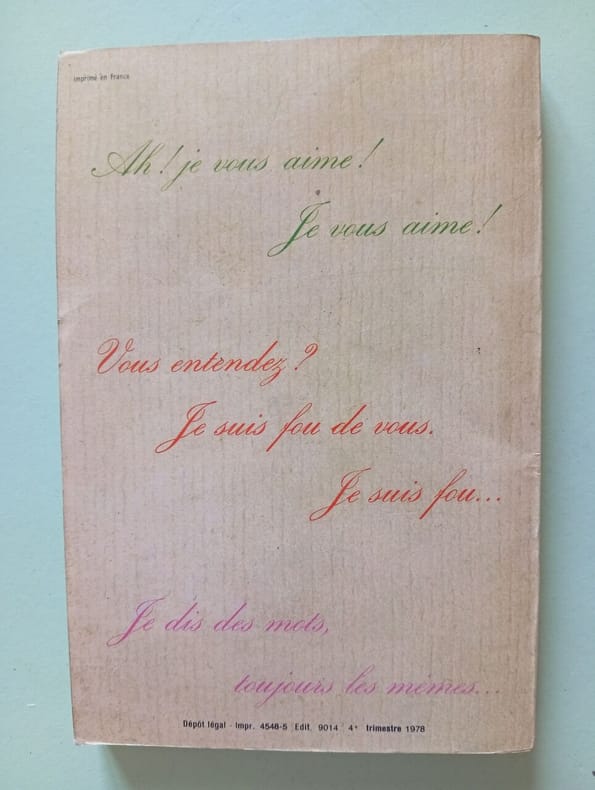 imprimé en france
Ah! je vous aime!
Je vous aime!
Vous entendez?
Je suis fou de vous.
Je suis fou...
Je dis des mots,
toujours les mêmes...
Dépôt légal - Impr. 4548-5 Edit. 9014 4e trimestre 1978